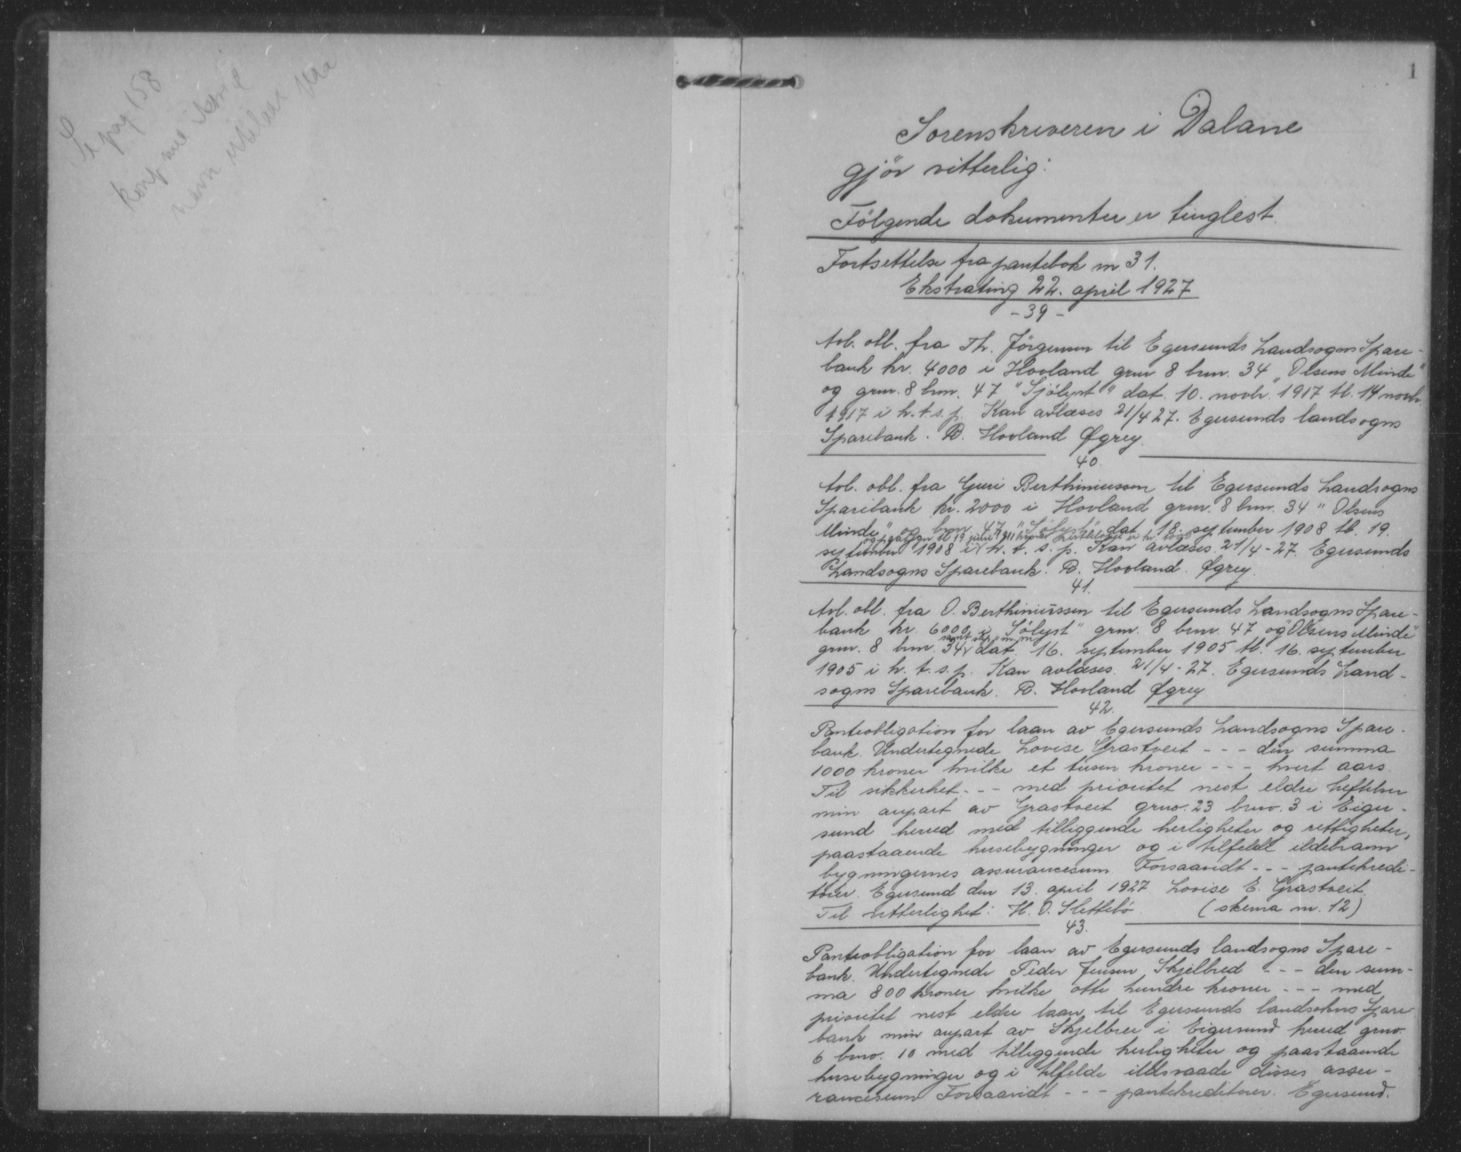 1
Se pag 158
Sorenskriveren i Dalane
gjör vitterlig:
Følgende dokumenter er tinglest
Fortsettelse fra pantebok nr 31.
Ekstrating 22. april 1927
- 39 -
Avl. obl. fra Th. Jörgensen til Egersunds Landsogns Spare-
bank kr. 4000 i Hovland grnr 8 brnr. 34 "Olsens Minde"
og grnr. 8 brnr. 47 "Sjölyst" dat. 10. novbr. 1917 tl. 14 novbr
1917 i h.t.s.p. Kan avlæses 21/4 27. Egersunds landsogns
Sparebank. B. Hovland Øgrey.
40.
Avl. obl. fra Guri Berthiniussen til Egersunds Landsogns
Sparebank kr. 2000 i Hovland grnr. 8 brnr. 34 " Olsens
Minde" og brnr. 47 "Sølyst" dat. 18. september 1908 tl. 19.
september 1908 i h. t. s. p. Kan avlæses 21/4 - 27 Egersunds
Landsogns Sparebank. B. Hovland. Øgrey.
41.
Avl. obl. fra O. Berthiniussen til Egersunds Landsogns Spare-
bank kr. 6000 i "Sölyst" grnr. 8 brnr. 47 og "Olsens Minde"
grnr. 8 brnr. 34 dat. 16. september 1905 tl. 16. september
1905 i h. t. s. p. Kan avlæses. 21/4 - 27. Egersunds Land-
sogns Sparebank. B. Hovland Øgrey
42.
Panteobligation for laan av Egersunds Landsogns Spare-
bank. Undertegnede Lovise Grastveit - - - den summa
1000 kroner hvilke et tusen kroner - - - hvert aars.
Til sikkerhet - - - med prioritet nest eldre heftelser
min anpart av Grastveit grnr. 23 brnr. 3 i Eiger-
sund herred med tilliggende herligheter og rettigheter,
paastaaende husebygninger og i tilfeldt ildebrann
bygningernes assurancesum. Forsaavidt - - - pantekredi-
torer. Egersund den 13. april 1927. Lovise E. Grastveit.
Til vitterlighet: H. O. Slettebö (skema nr. 12)
43.
Panteobligation for laan av Egersunds landsogns Spare-
bank. Undertegnede Peder Jensen Skjelbred - - - den sum-
ma 800 kroner hvilke otte hundre kroner - - - med
prioritet nest eldre laan til Egersunds landsokns Spare
bank min anpart av Skjelbrei i Eigersund herred grnr.
6 brnr. 10 med tilliggende herligheter og paastaaende
husebygninger og i tilfelde ildsvaade disses assu-
rancesum Forsaavidt - - - pantekreditorer. Egersund.